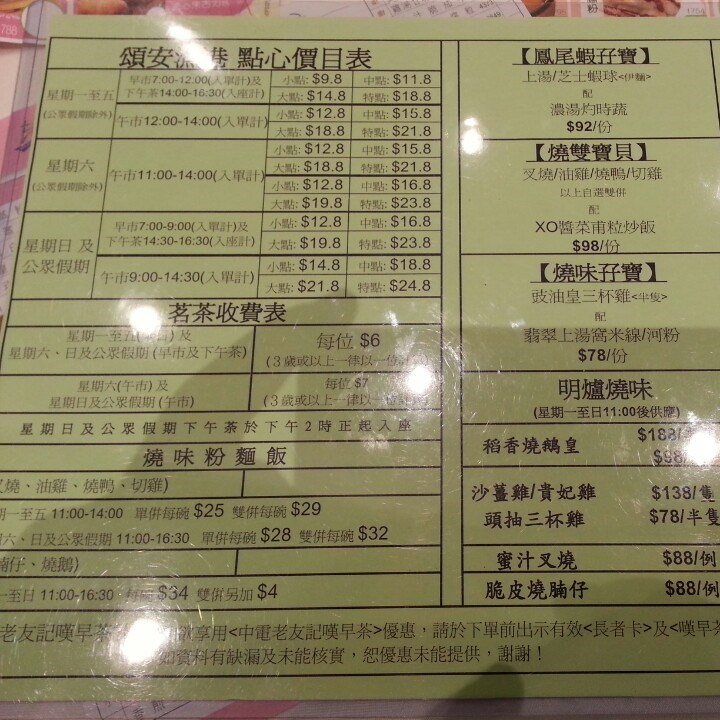 頌安漁港 點心價目表
星期一至五
(公眾假期除外)
早市7:00-12:00(入單計)及
下午茶14:00-16:30(入座計)
小點: $9.8 中點: $11.8
大點: $14.8 特點: $18.8
午市12:00-14:00(入單計)
小點: $12.8 中點: $15.8
大點: $18.8 特點: $21.8
星期六
(公眾假期除外)
午市11:00-14:00(入單計)
小點: $12.8 中點: $15.8
大點: $18.8 特點: $21.8
小點: $12.8 中點: $16.8
大點: $19.8 特點: $23.8
星期日 及
公眾假期
早市7:00-9:00(入單計)及
下午茶14:30-16:30(入座計)
小點: $12.8 中點: $16.8
大點: $19.8 特點: $23.8
午市9:00-14:30(入單計)
小點: $14.8 中點: $18.8
大點: $21.8 特點: $24.8
茗茶收費表
星期一至五 及
星期六、日及公眾假期 (早市及下午茶)
每位 $6
(3歲或以上一律以一位計
星期六(午市) 及
星期日及公眾假期 (午市)
每位 $7
(3歲或以上一律以一位計
星期日及公眾假期下午茶於下午2時正起入座
燒味粉麵飯
燒、油雞、燒鴨、切雞)
期一至五 11:00-14:00 單併每碗 $25 雙併每碗 $29
六、日及公眾假期 11:00-16:30 單併每碗 $28 雙併每碗 $32
腩仔、燒鵝)
一至日 11:00-16:30 每碗 $34 雙併另加 $4
【鳳尾蝦孖寶】
上湯/芝士蝦球<伊麵>
配
濃湯灼時蔬
$92/份
【燒雙寶貝】
叉燒/油雞/燒鴨/切雞
以上自選雙併
配
XO醬菜甫粒炒飯
$98/份
【燒味孖寶】
豉油皇三杯雞<半隻>
配
翡翠上湯窩米線/河粉
$78/份
明爐燒味
(星期一至日11:00後供應)
稻香燒鵝皇 $188/
$98/
沙薑雞/貴妃雞 $138/隻
頭抽三杯雞 $78/半隻
蜜汁叉燒 $88/例
脆皮燒腩仔 $88/例
老友記嘆早茶 欲享用<中電老友記嘆早茶>優惠，請於下單前出示有效<長者卡>及<嘆早茶
如資料有缺漏及未能核實，恕優惠未能提供，謝謝！